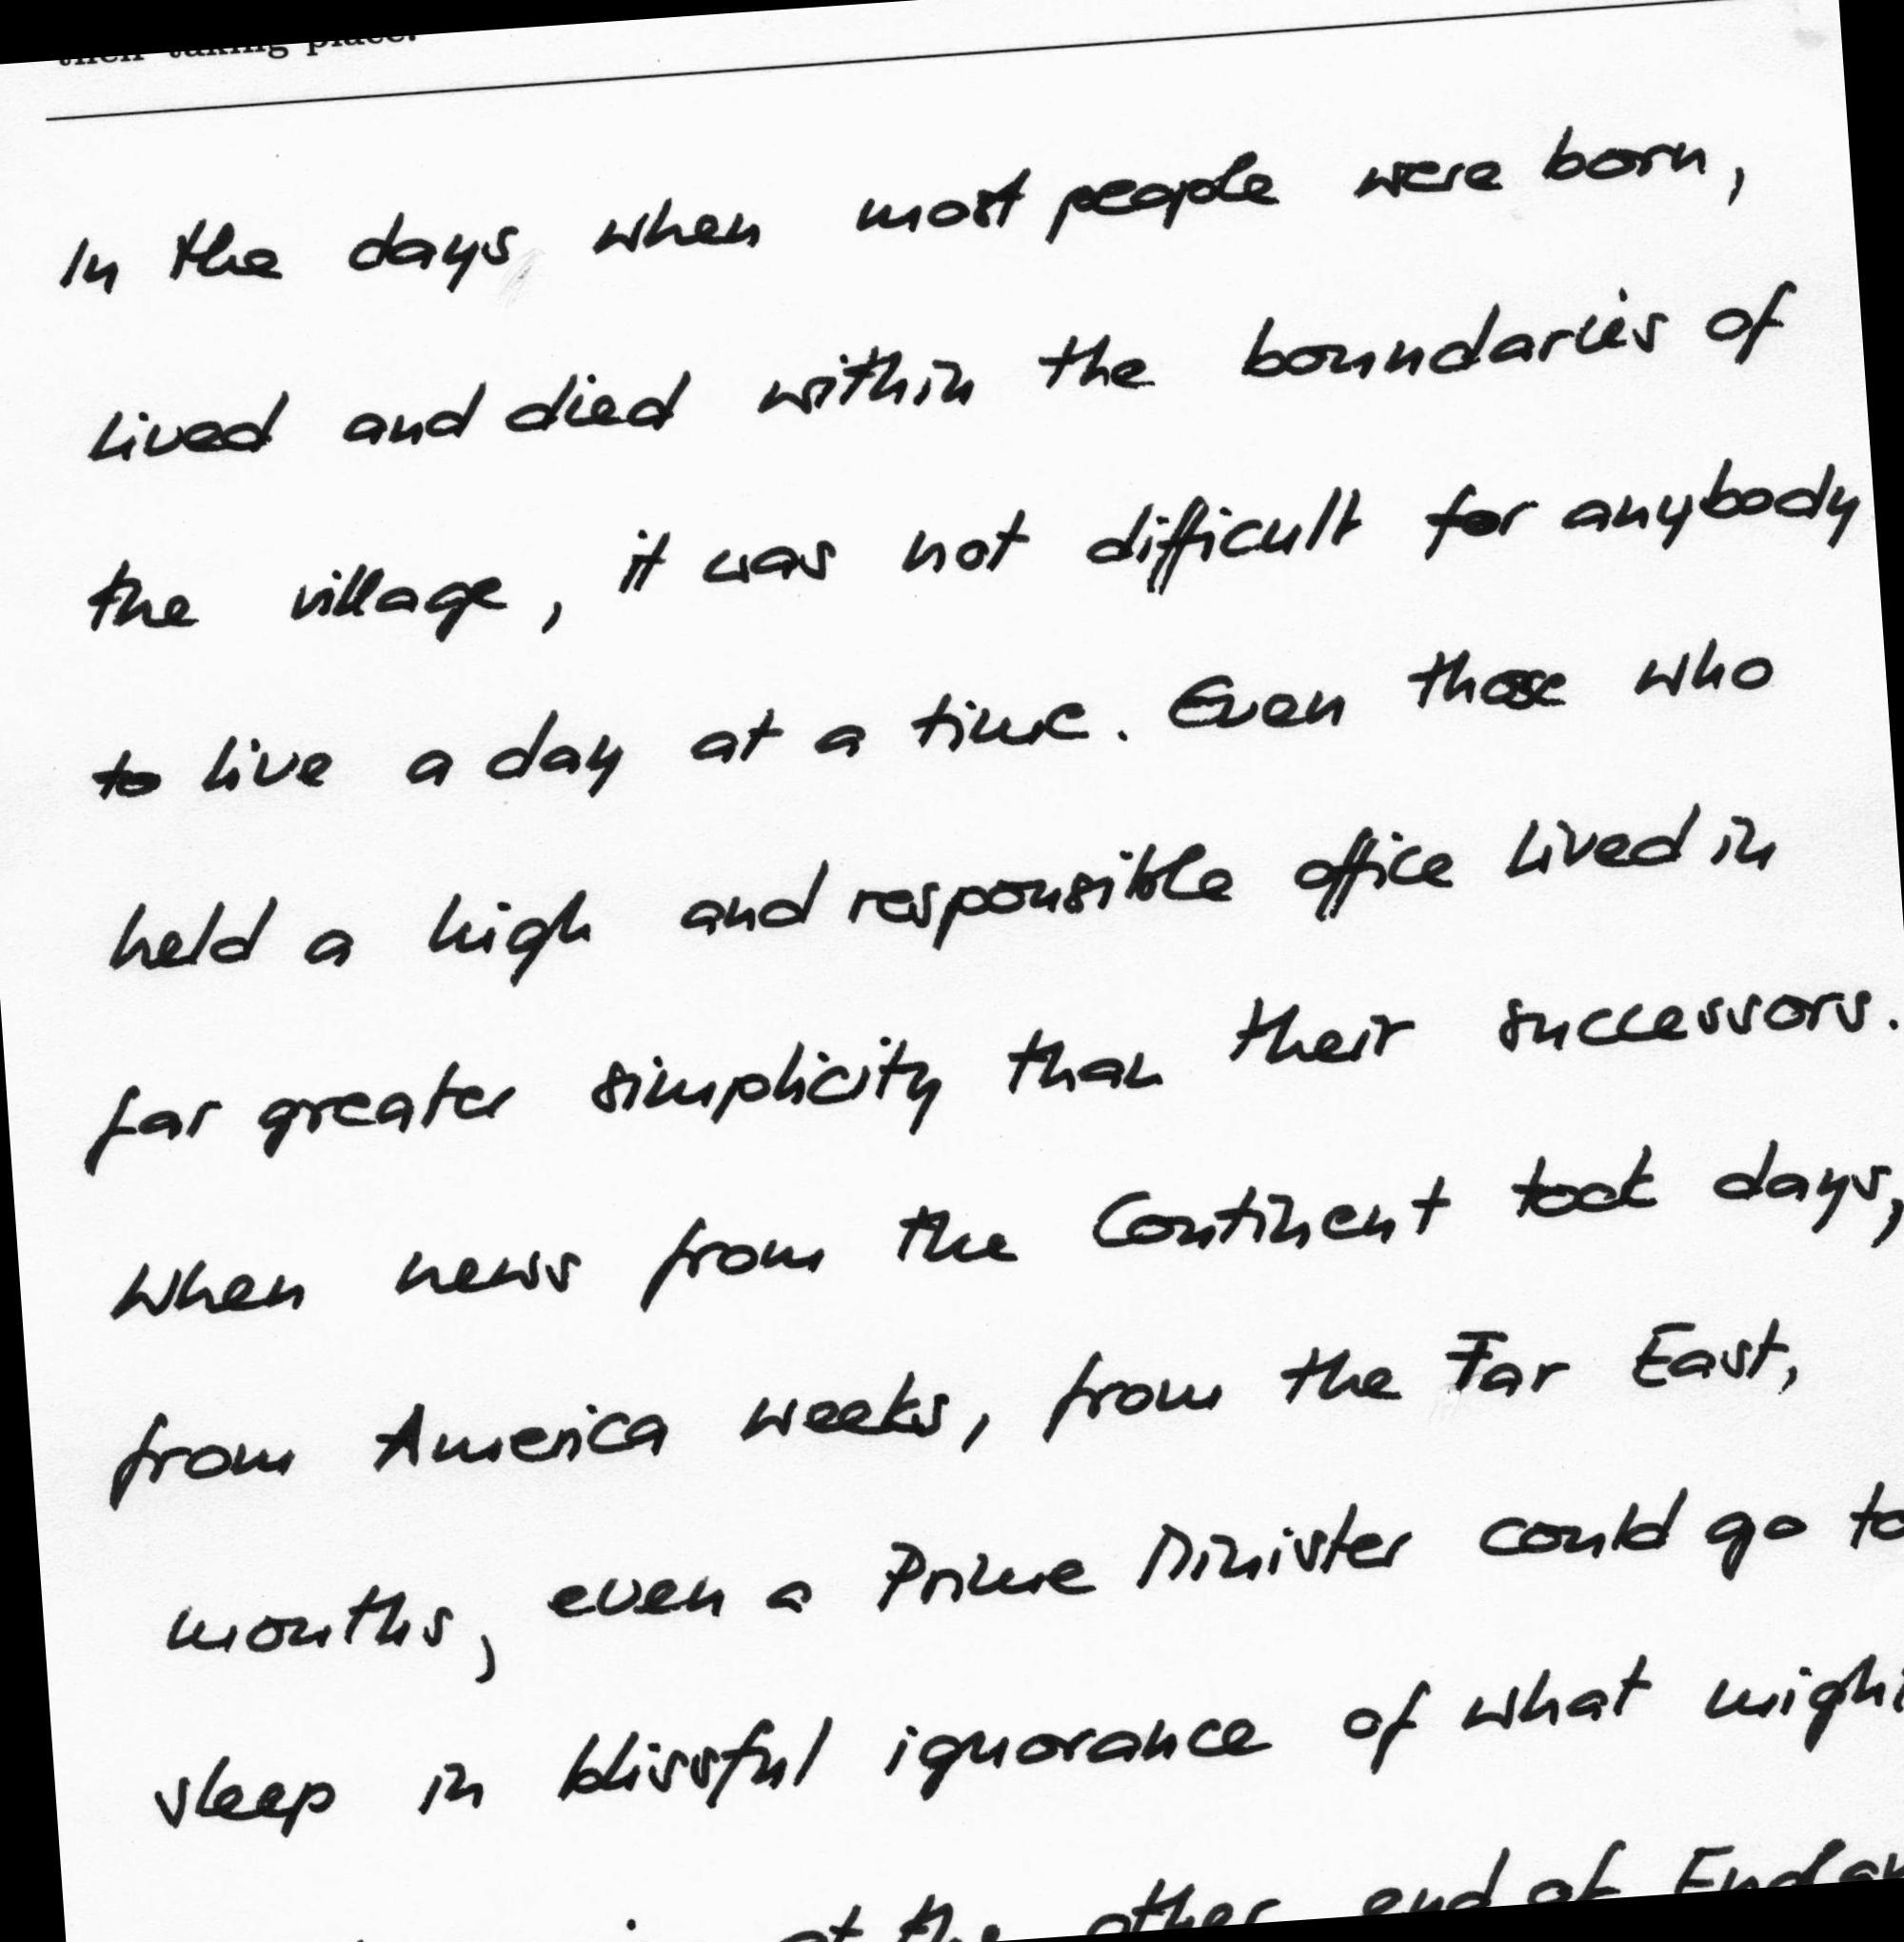 then taking place.
In the days when most people were born,
lived and died within the boundaries of
the village, it was not difficult for anybody
to live a day at a time. Even those who
held a high and responsible office lived in
far greater simplicity than their successors.
When news from the Continent took days,
from America weeks, from the Far East,
months, even a Prime Minister could go to
sleep in blissful ignorance of what might
at the other end of